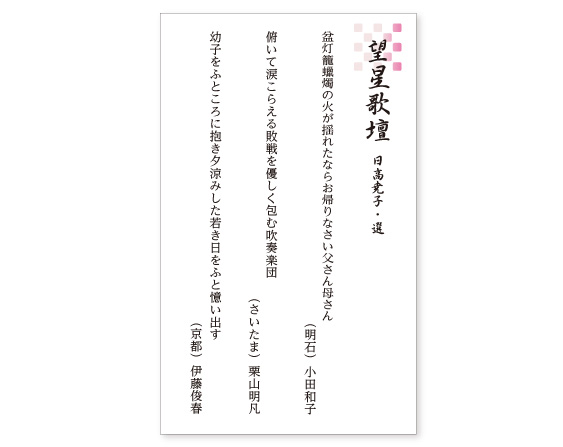 望星歌壇
日高堯子・選
盆灯籠蠟燭の火が揺れたならお帰りなさい父さん母さん
（明石）小田和子
俯いて涙こらえる敗戦を優しく包む吹奏楽団
（さいたま）栗山明凡
幼子をふところに抱き夕涼みした若き日をふと憶い出す
（京都）伊藤俊春